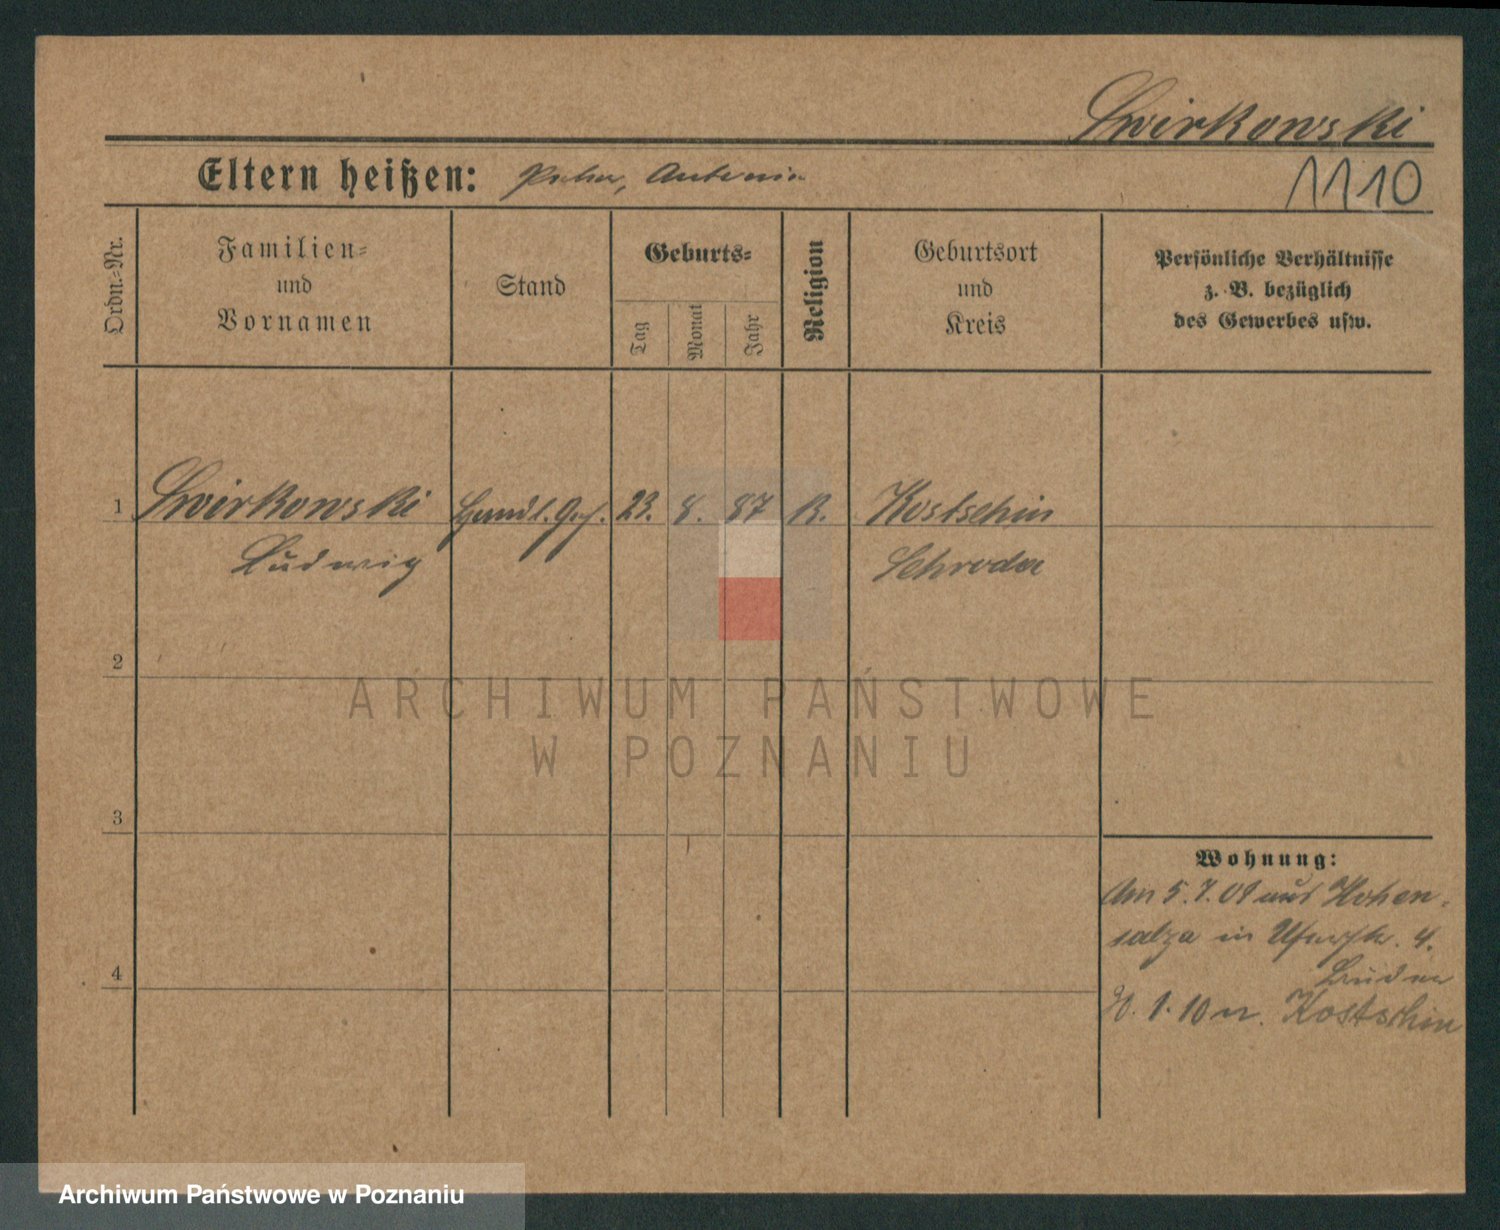 Swirkowski
Eltern heißen: Peter, Antonia
1110
Ordn.-Nr.
Familien-
und
Vornamen
Stand
Geburts-
Tag
Monat
Jahr
Religion
Geburtsort
und
Kreis
Persönliche Verhältnisse
z. B. bezüglich
des Gewerbes usw.
1 Swirkowski Handl. Geh. 23. 8. 87 K. Kostschin
Ludwig Schroda
2
ARCHIWUM PAŃSTWOWE
W POZNANIU
3
Wohnung:
Am 5.7.09 aus Hohen-
salza in Uferstr. 4.
4
1.10 n. Kostschin
Archiwum Państwowe w Poznaniu